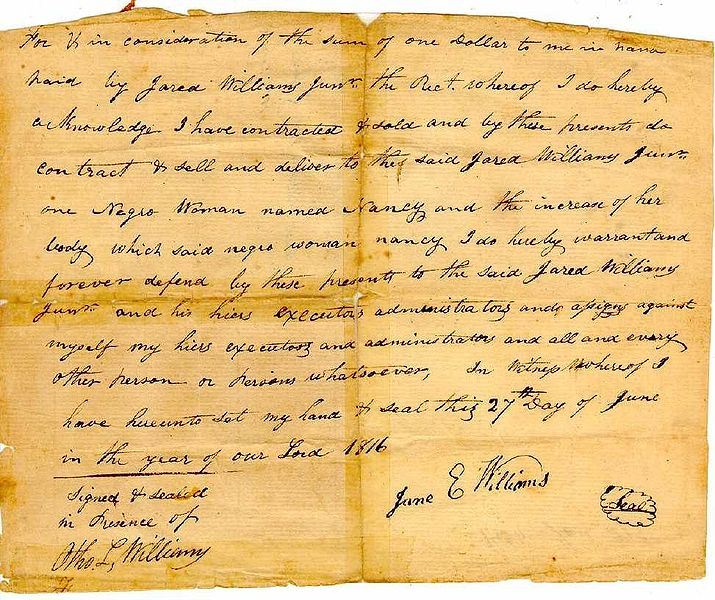 For & in consideration of the sum of one Dollar to me in hand
paid by Jared Williams Junr. the Rect. whereof I do hereby
acknowledge I have contracted & sold and by these presents do
contract & sell and deliver to the said Jared Williams Junr.
one Negro Woman named Nancy and the increase of her
body which said negro woman nancy I do hereby warrant and
forever defend by these presents to the said Jared Williams
Junr. and his hiers executors administrators and assigns against
myself my hiers executors and administrators and all and every
other person or persons whatsoever, In Witness Whereof I
have hereunto set my hand & seal this 27th Day of June
in the year of our Lord 1816
Signed & sealed
in Presence of
Otho. L, Williams
Jane E Williams
Seal